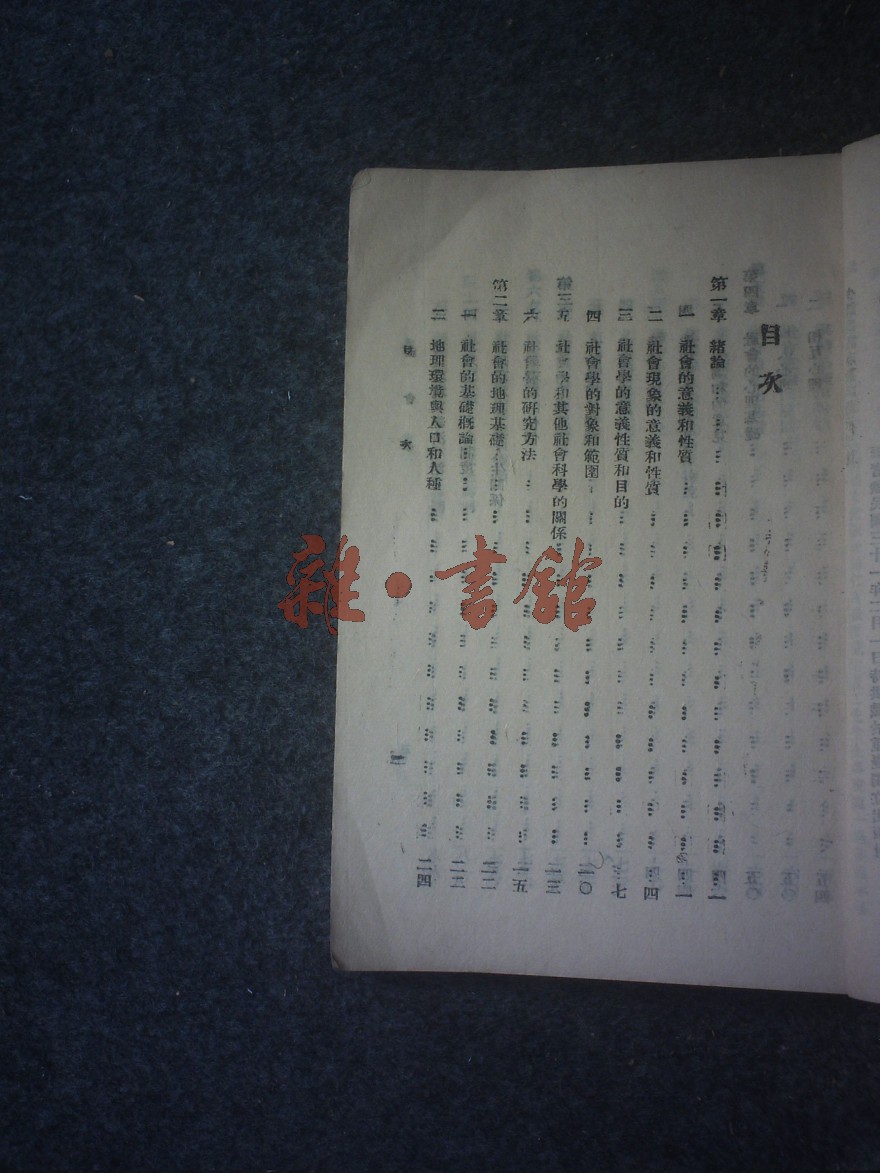 目次
第一章 緒論……一
一 社會的意義和性質……一
二 社會現象的意義和性質……四
三 社會學的意義性質和目的……七
四 社會學的對象和範圍……一〇
五 社會學和其他社會科學的關係……一三
六 社會學的研究方法……一五
第二章 社會的地理基礎……二二
一 社會的基礎概論……二二
二 地理環境與人口和人種……二四
目次
一
雜·書館